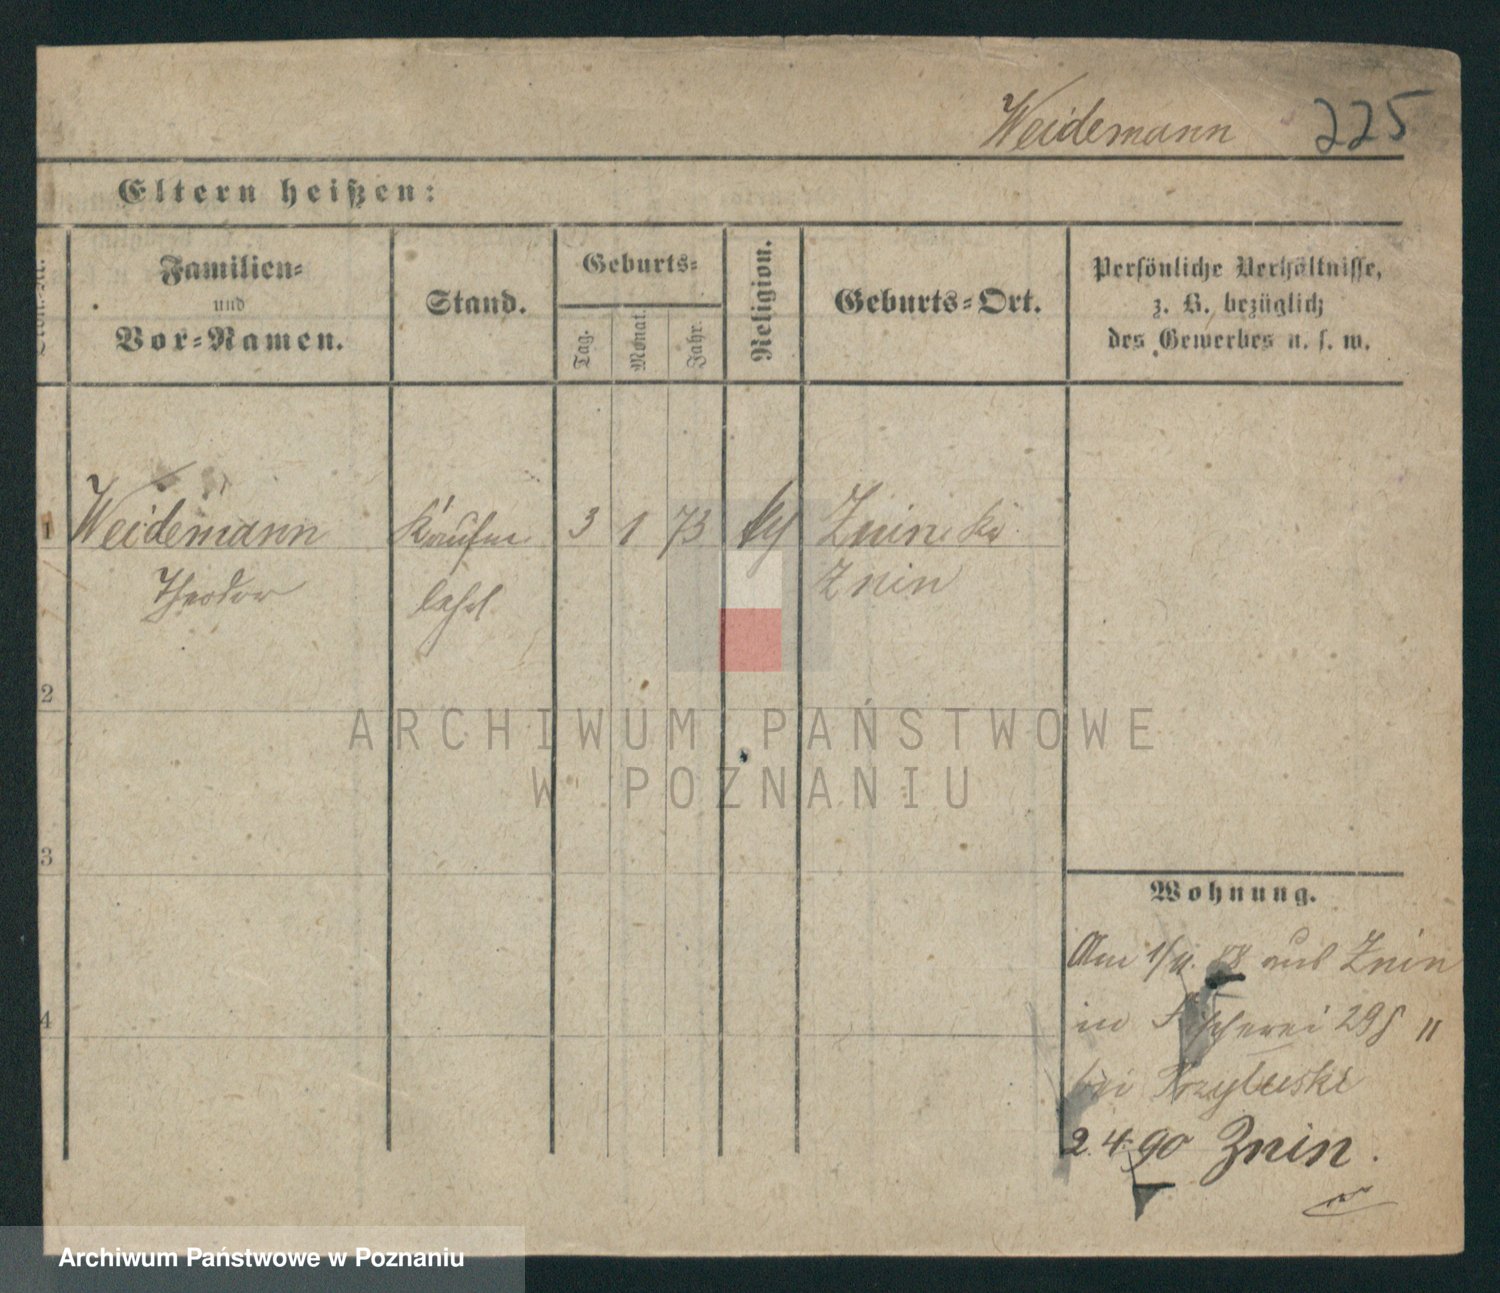 Weidemann 225
Eltern heißen:
Familien-
und
Vor-Namen.
Stand.
Geburts-
Tag.
Monat.
Jahr.
Religion.
Geburts-Ort.
Persönliche Verhältnisse,
z. B. bezüglich
des Gewerbes u. s. w.
1 Weidemann Kaufm 3 1 73 Znin Kr.
Theodor lehrl Znin
2
ARCHIWUM PAŃSTWOWE
W POZNANIU
3
Wohnung.
Am 1/4. 88 aus Znin
in Fischerei 29
4
bei
2.4.90 Znin.
Archiwum Państwowe w Poznaniu